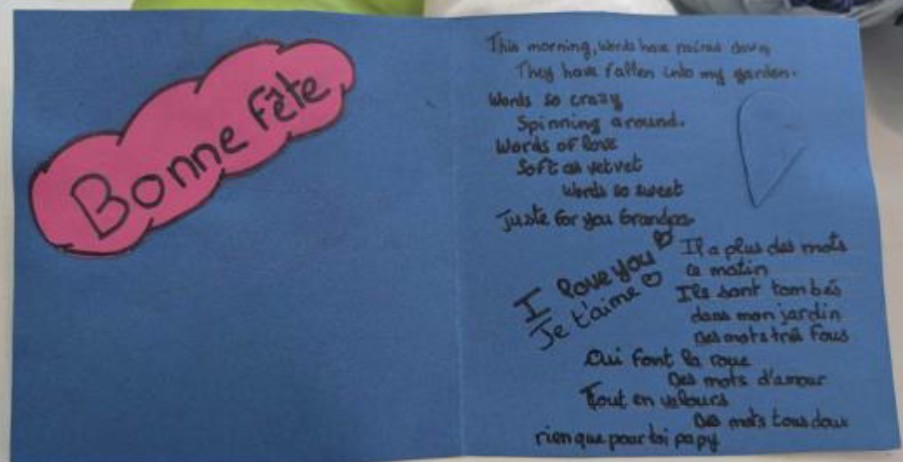 Bonne Fête
This morning, words have pained down
They have fallen into my garden.
Words so crazy
Spinning around.
Words of love
Soft as velvet
Words so sweet
Juste for you Grandpa.
I love you
Je t'aime
Il a plus des mots
ce matin
Ils sont tombés
dans mon jardin
Des mots très fous
Qui font la roue
Des mots d'amour
Tout en velours
Des mots tous doux
rien que pour toi papy